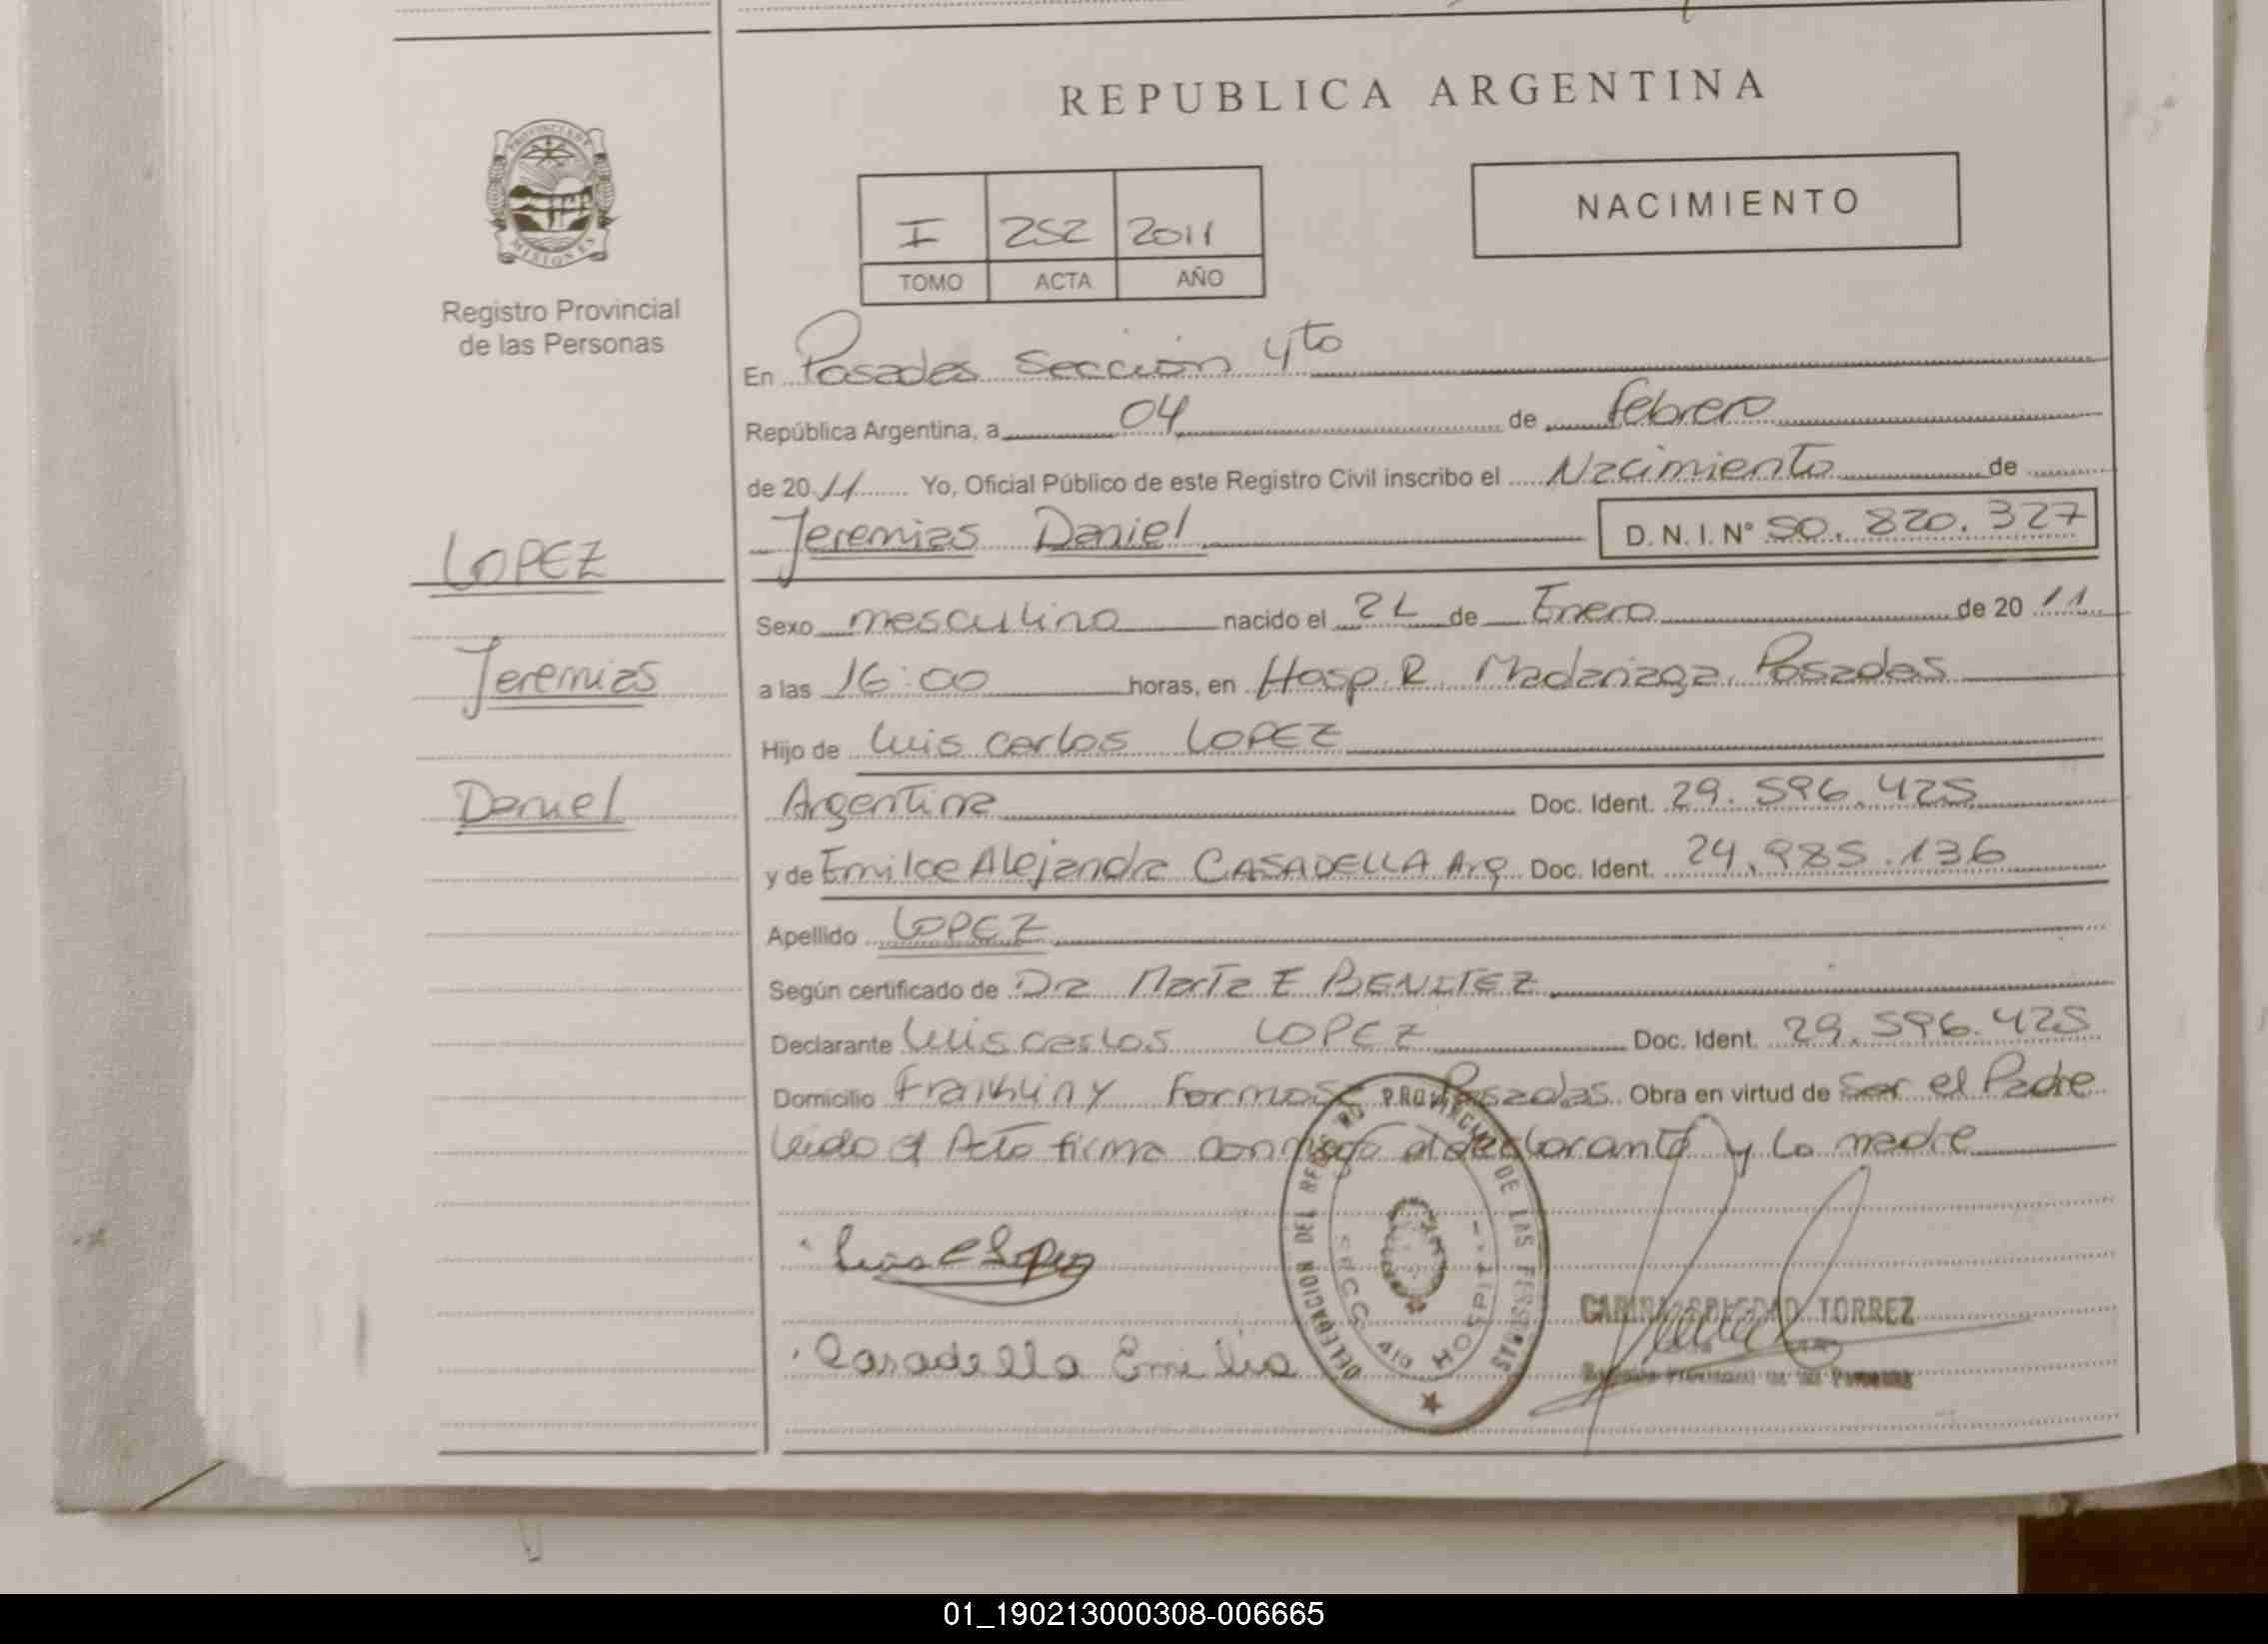 REPUBLICA ARGENTINA
PROVINCIA DE MISIONES
Registro Provincial
de las Personas
NACIMIENTO
I 252 2011
TOMO ACTA AÑO
En Posadas Sección 4to
República Argentina, a 04 de febrero
de 2011 Yo, Oficial Público de este Registro Civil inscribo el Nacimiento de
Jeremias Daniel D. N. I. N° 50.820.327
LOPEZ
Jeremias
Daniel
Sexo masculino nacido el de Enero de 2011
a las 16:00 horas, en Hosp. R. Madariaga Posadas
Hijo de Luis Carlos LOPEZ
Argentina Doc. Ident. 29.596.425
y de Emilce Alejandra CASADELLA Arg Doc. Ident. 24.985.136
Apellido LOPEZ
Según certificado de Dra Marta E BENITEZ
Declarante Luis Carlos LOPEZ Doc. Ident. 29.596.425
Domicilio Franklin y Formosa Posadas Obra en virtud de Ser el Padre
Leido el Acto firma conmigo el declarante y la madre
Luis C Lopez
Casadella Emilia
DELEGACION DEL REGISTRO PROVINCIAL DE LAS PERSONAS
SECC. 4to HOSPITAL
SOLEDAD TORREZ
Registro Provincial de las Personas
01_190213000308-006665